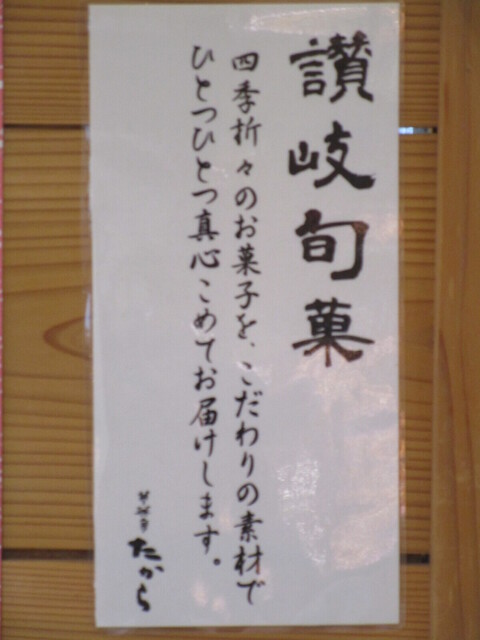 讃岐旬菓
四季折々のお菓子を、こだわりの素材で
ひとつひとつ真心こめてお届けします。
たから